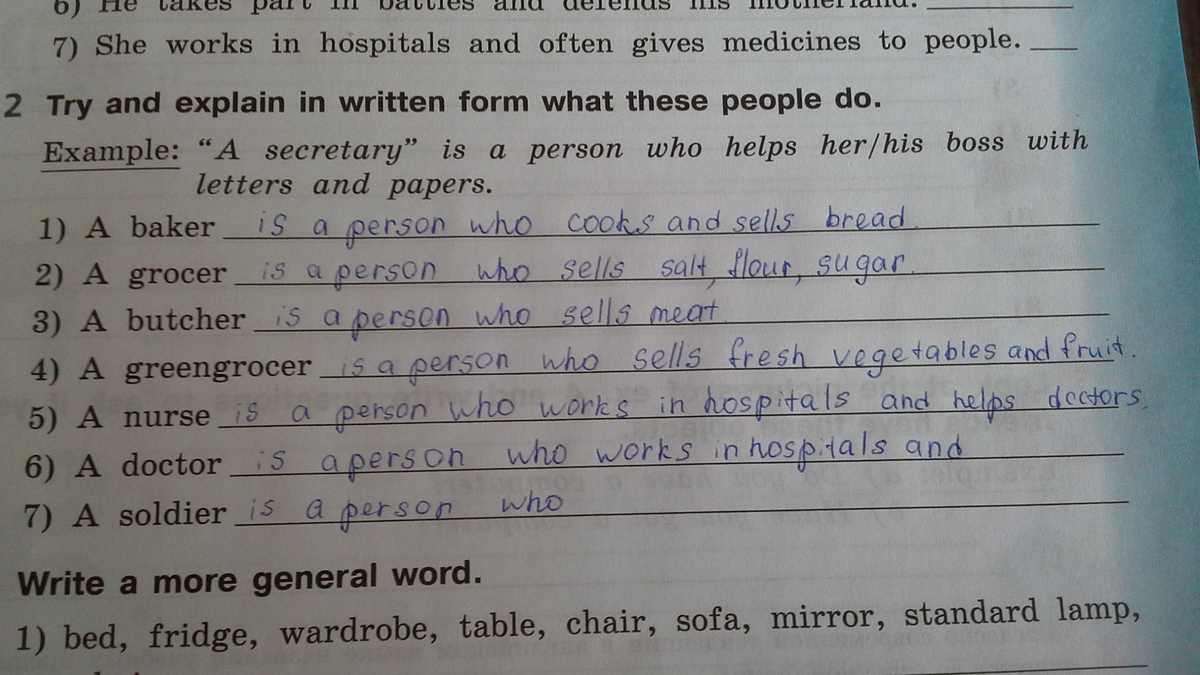 6) He takes part in battles and defends his motherland.
7) She works in hospitals and often gives medicines to people.
2 Try and explain in written form what these people do.
Example: “A secretary” is a person who helps her/his boss with
letters and papers.
1) A baker is a person who cooks and sells bread.
2) A grocer is a person who sells salt, flour, sugar.
3) A butcher is a person who sells meat
4) A greengrocer is a person who sells fresh vegetables and fruit.
5) A nurse is a person who works in hospitals and helps doctors.
6) A doctor is a person who works in hospitals and
7) A soldier is a person who
Write a more general word.
1) bed, fridge, wardrobe, table, chair, sofa, mirror, standard lamp,